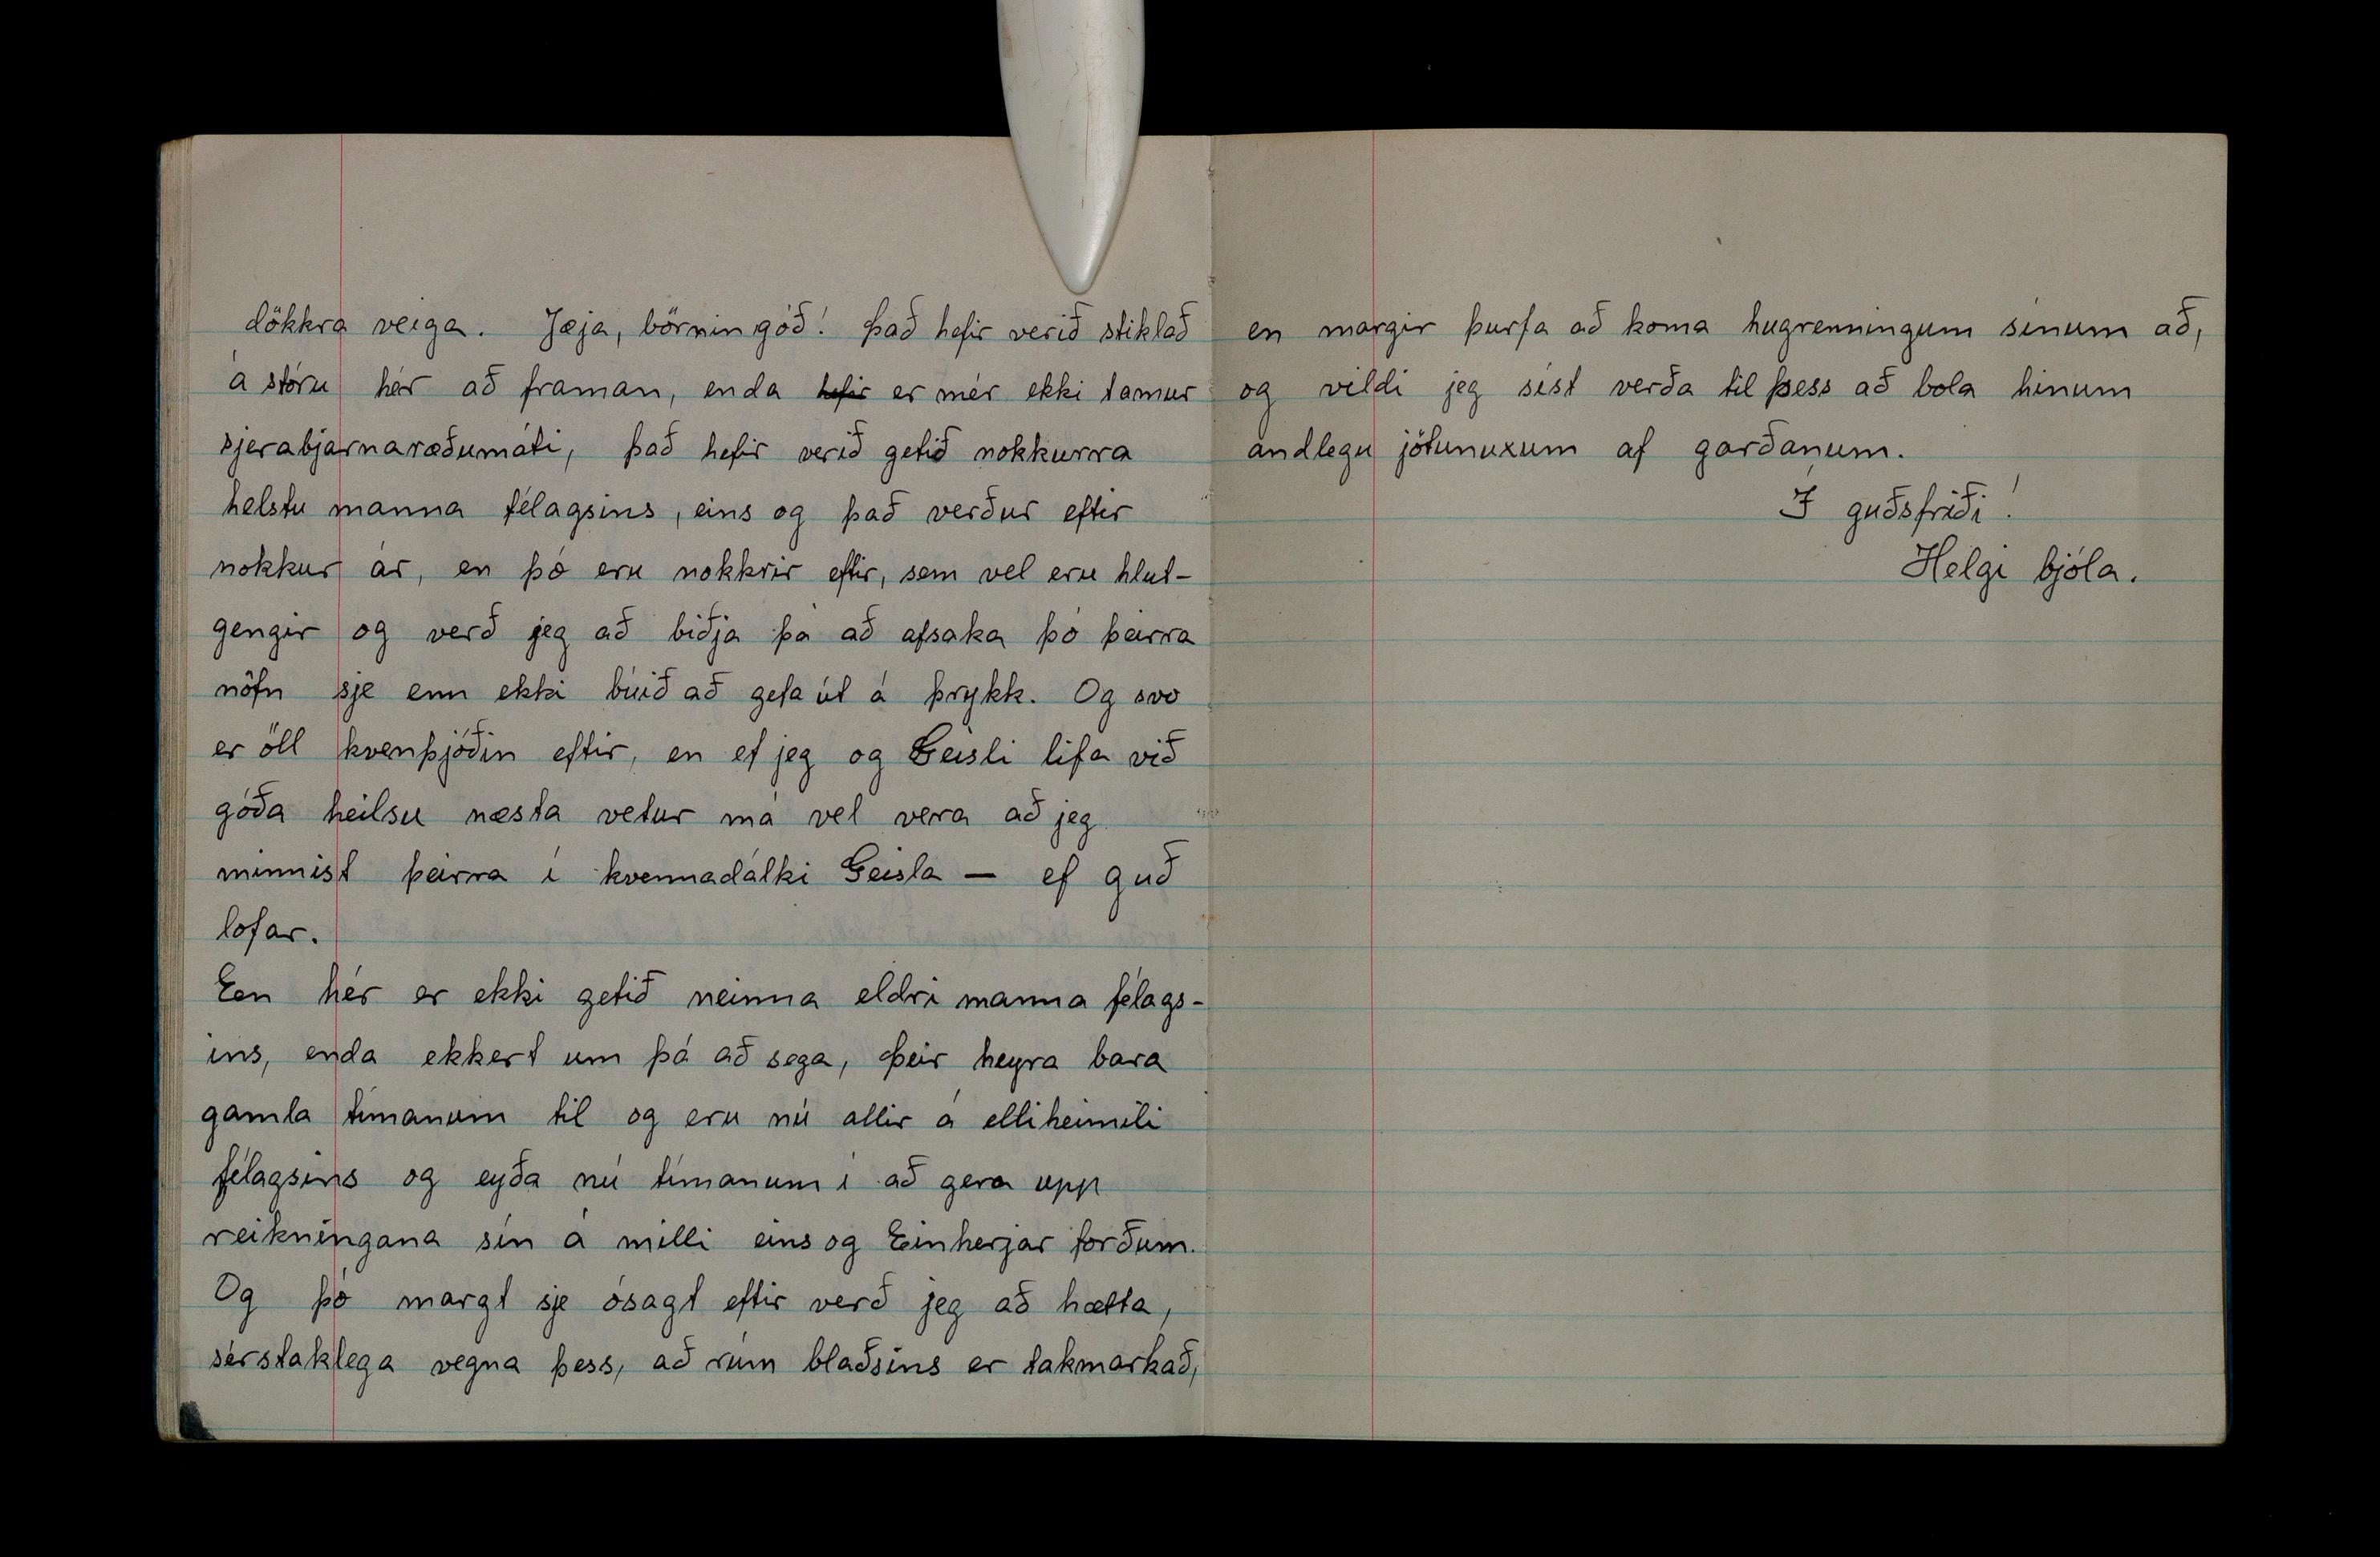 dökkra veiga. Jæja, börnin góð! Það hefir verið stiklað
á stóru hér að framan, enda hefir er mér ekki tamur
sjerabjarnaræðumáti, það hefir verið getið nokkurra
helstu manna félagsins, eins og það verður eftir
nokkur ár, en þó eru nokkrir eftir, sem vel eru hlut-
gengir og verð jeg að biðja þá að afsaka þó þeirra
nöfn sje enn ekki búið að gefa út á þrykk. Og svo
er öll kvenþjóðin eftir, en ef jeg og Geisli lifa við
góða heilsu næsta vetur má vel vera að jeg
minnist þeirra í kvennadálki Geisla — ef guð
lofar.
En hér er ekki getið neinna eldri manna félags-
ins, enda ekkert um þá að sega, þeir heyra bara
gamla tímanum til og eru nú allir á elliheimili
félagsins og eyða nú tímanum í að gera upp
reikningana sín á milli eins og Einherjar forðum.
Og þó margt sje ósagt eftir verð jeg að hætta,
sérstaklega vegna þess, að rúm blaðsins er takmarkað,
en margir þurfa að koma hugrenningum sínum að,
og vildi jeg síst verða til þess að bola hinum
andlegu jötunuxum af garðanum.
Í guðsfriði!
Helgi bjóla.